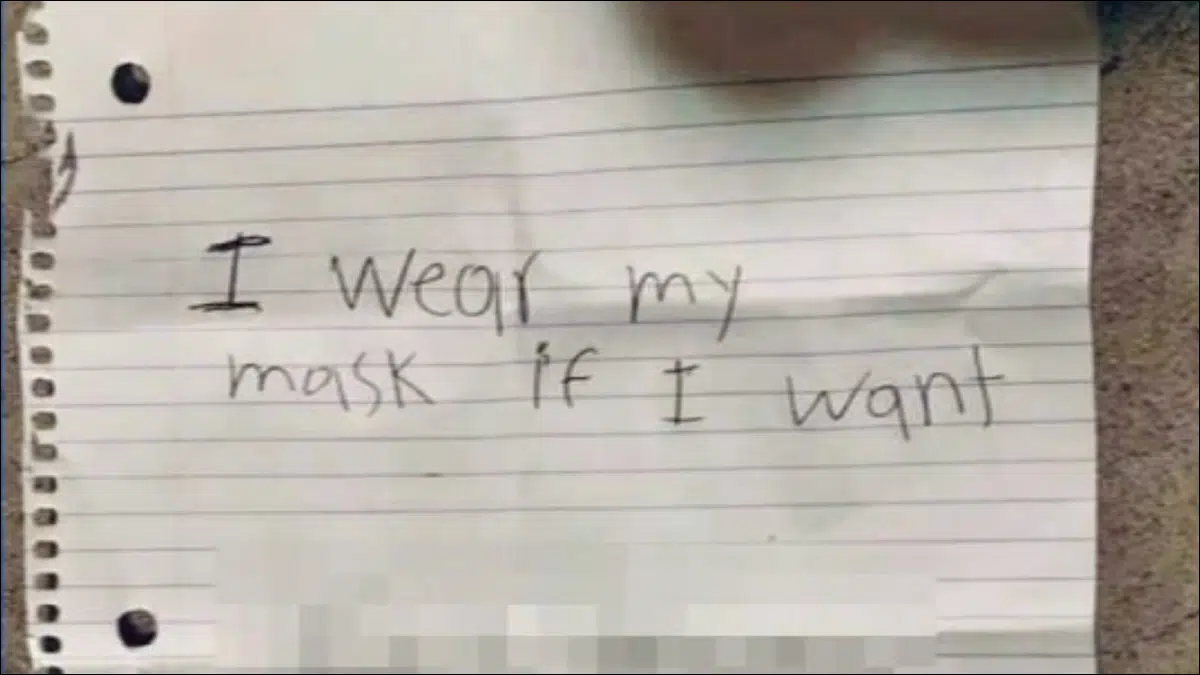 I wear my
mask if I want